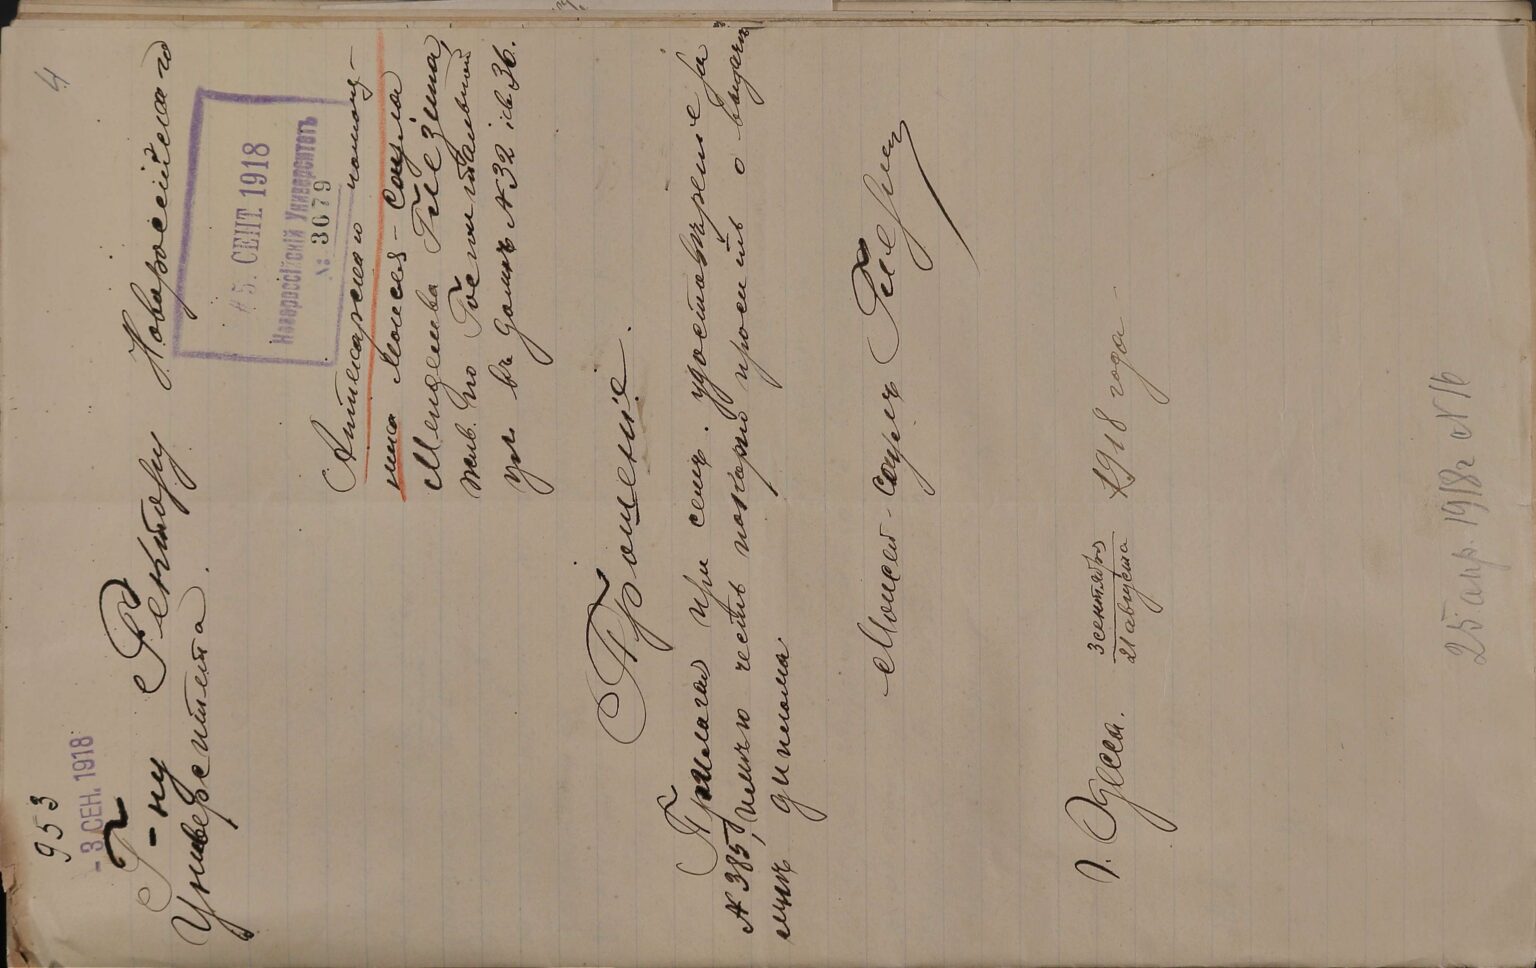 4
953
- 3 СЕН. 1918
Г-ну Ректору Новороссійскаго
Университета.
5. СЕНТ 1918
Новороссійскій Университетъ
№ 3079
Аптекарскаго помощ-
ника Моисея-Сруля
Менделева Глезина,
жив. по Госпитальной
ул. въ домѣ № 32 кв 36.
Прошеніе.
Прилагая при семъ удостовѣреніе за
№ 385, имѣю честь покорно просить о выдачѣ
мнѣ диплома.
Моисей-Сруль Глезин
г. Одесса. 3 сентября / 21 августа 1918 года
25 апр. 1918 г № 16